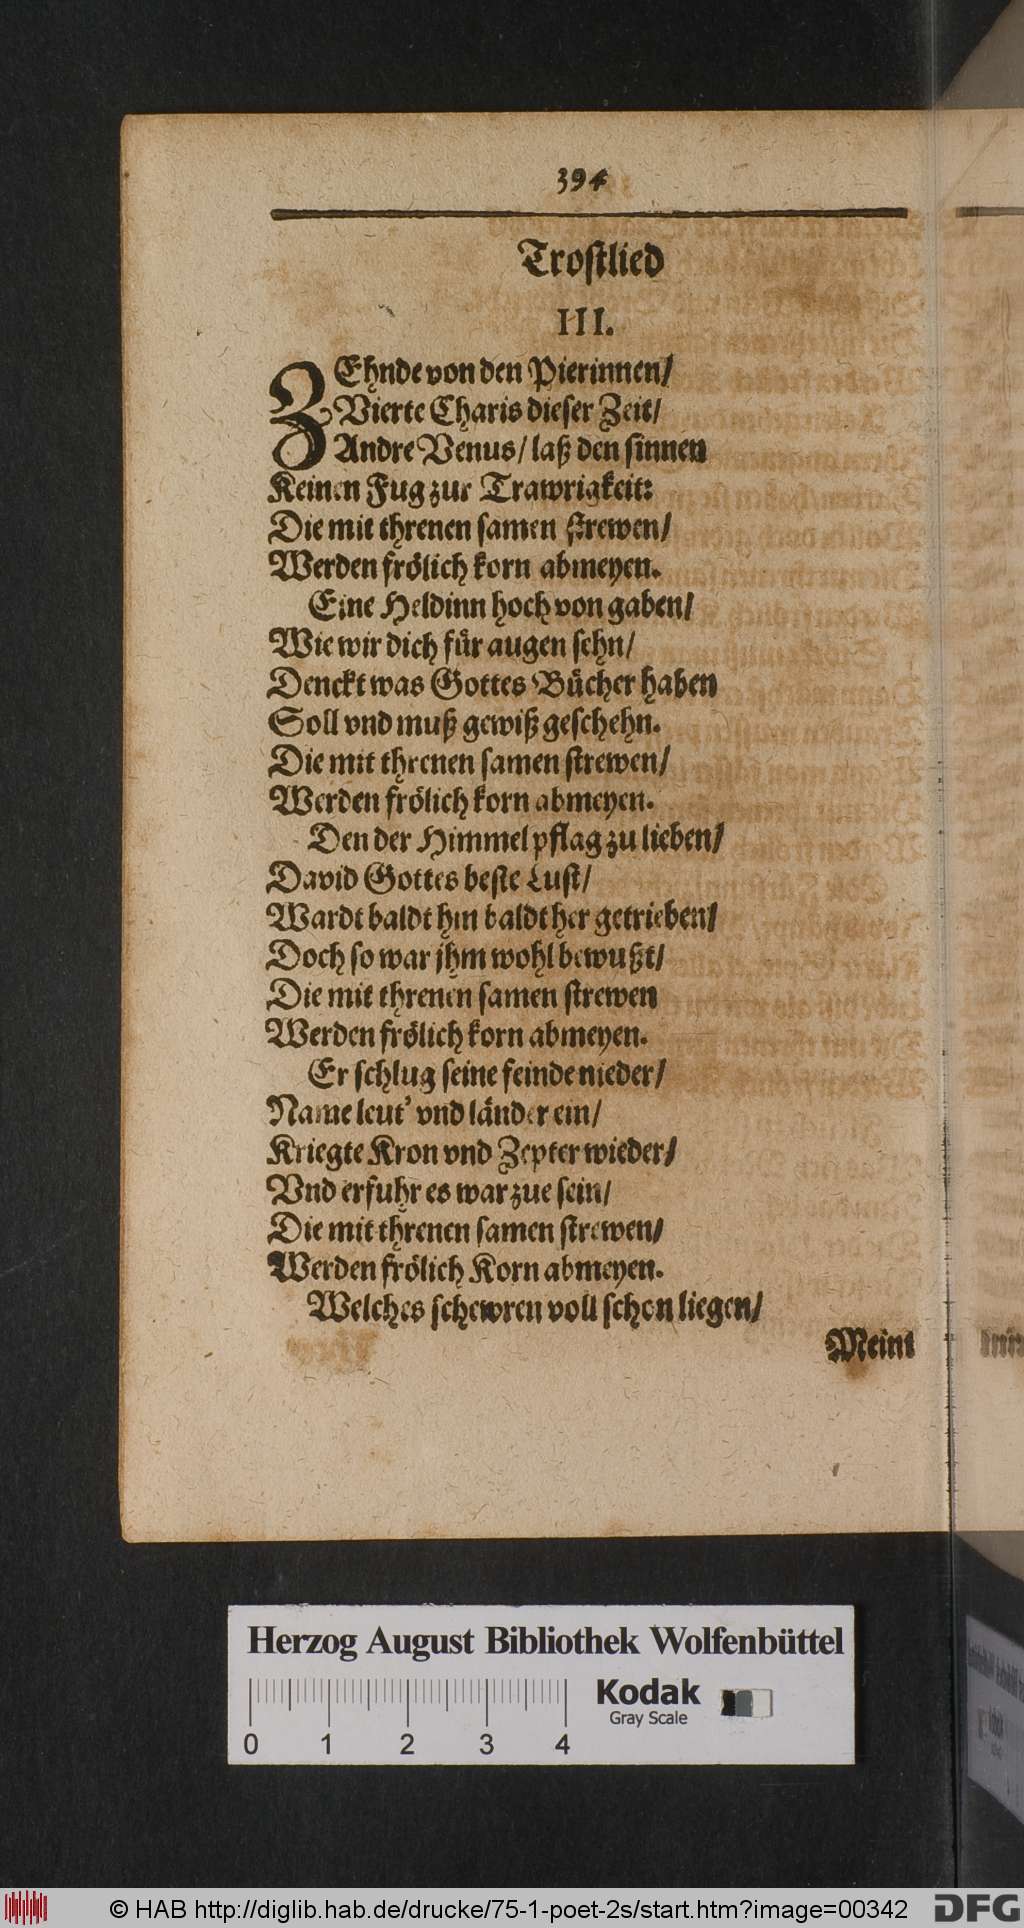 394
Trostlied
III.
ZEhnde von den Pierinnen/
Vierte Charis dieser Zeit/
Andre Venus/ laß den sinnen
Keinen Fug zur Trawrigkeit:
Die mit threnen samen strewen/
Werden frölich korn abmeyen.
Eine Heldinn hoch von gaben/
Wie wir dich für augen sehn/
Denckt was Gottes Bücher haben
Soll vnd muß gewiß geschehn.
Die mit threnen samen strewen/
Werden frölich korn abmeyen.
Den der Himmel pflag zu lieben/
David Gottes beste Lust/
Wardt baldt hin baldt her getrieben/
Doch so war jhm wohl bewußt/
Die mit threnen samen strewen
Werden frölich korn abmeyen.
Er schlug seine feinde nieder/
Name leut' vnd länder ein/
Kriegte Kron vnd Zepter wieder/
Vnd erfuhr es war zue sein/
Die mit threnen samen strewen/
Werden frölich Korn abmeyen.
Welches schewren voll schon liegen/
Meint
Herzog August Bibliothek Wolfenbüttel
Kodak
Gray Scale
0 1 2 3 4
© HAB http://diglib.hab.de/drucke/75-1-poet-2s/start.htm?image=00342
DFG